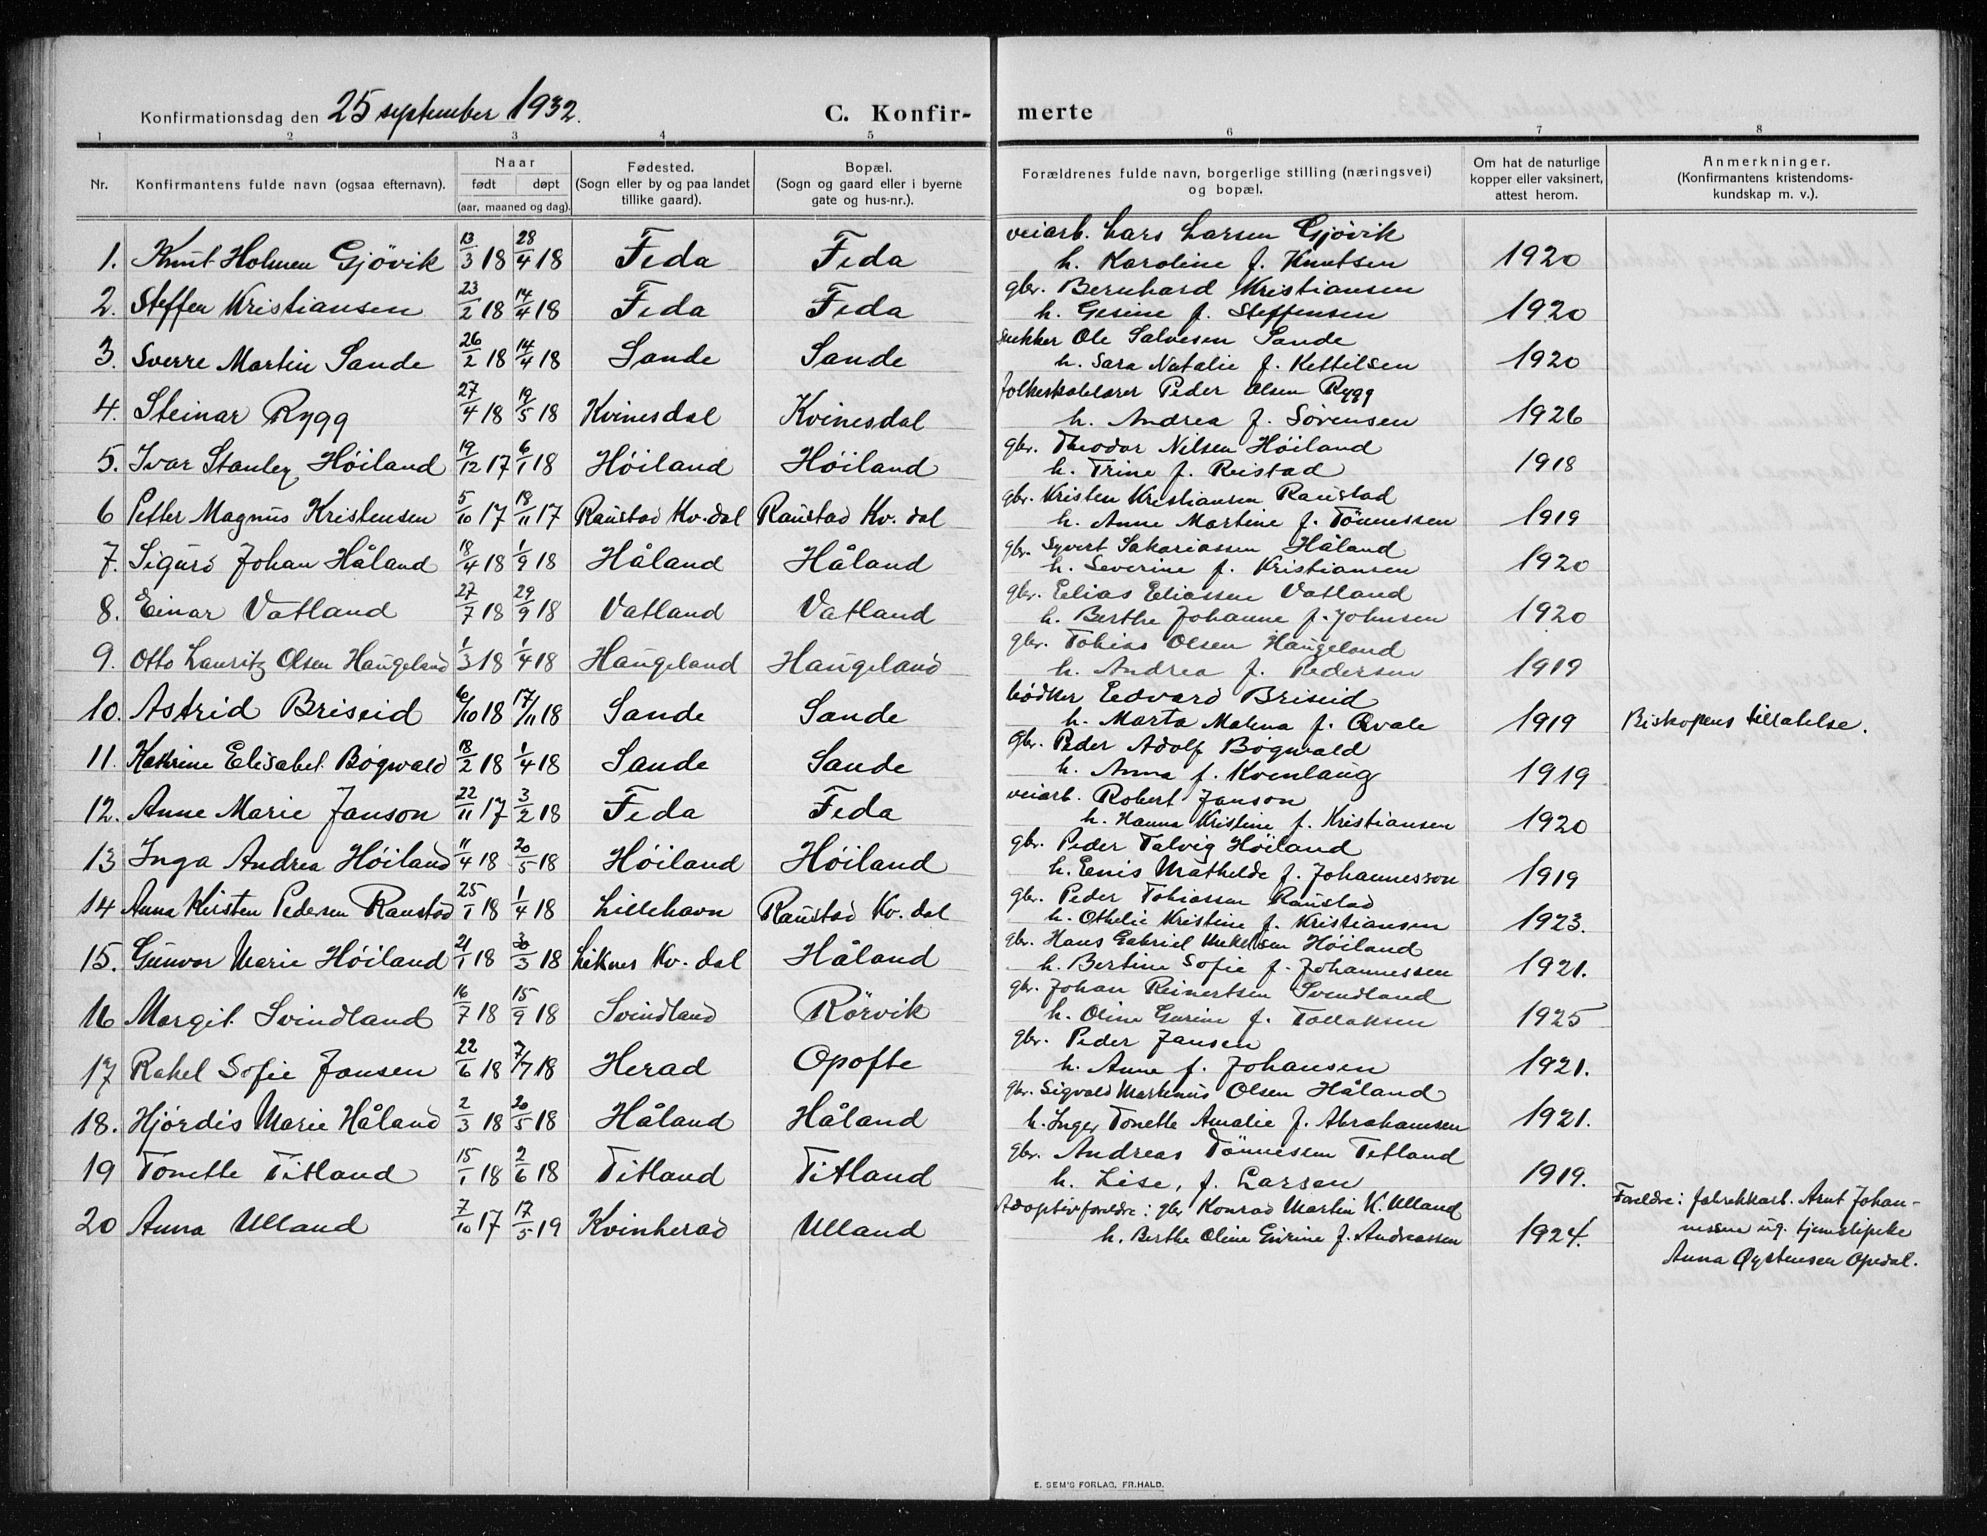 Konfirmationsdag den 25 september 1932. C. Konfir- merte
1 2 3 4 5 6 7 8
Nr. Konfirmantens fulde navn (ogsaa efternavn). Naar født døpt (aar, maaned og dag). Fødested. (Sogn eller by og paa landet tillike gaard). Bopæl. (Sogn og gaard eller i byerne gate og hus-nr.). Forældrenes fulde navn, borgerlige stilling (næringsvei) og bopæl. Om hat de naturlige kopper eller vaksinert, attest herom. Anmerkninger. (Konfirmantens kristendoms-kundskap m. v.).
veiarb. Lars Larsen Gjövik
1. Knut Holmen Gjövik 13/3 18 28/4 18 Feda Feda h. Karoline f. Knutsen 1920
gbr. Bernhard Kristiansen
2. Steffen Kristiansen 23/2 18 14/4 18 Feda Feda h. Gesine f. Steffensen 1920
Snekker Ole Salvesen Sande
3. Sverre Martin Sande 26/2 18 14/4 18 Sande Sande h. Sara Natalie f. Kettilsen 1920
folkeskolelærer Peder Olsen Rygg
4. Steinar Rygg 27/4 18 19/5 18 Kvinesdal Kvinesdal h. Andrea f. Sörensen 1926
gbr. Theodor Nilsen Höiland
5. Ivar Stanley Höiland 19/12 17 6/1 18 Höiland Höiland h. Trine f. Reistad 1918
gbr. Kristen Kristiansen Raustad
6 Petter Magnus Kristensen 5/10 17 18/11 17 Raustad Kv.dal Raustad Kv. dal h. Anne Martine f. Tönnessen 1919
gbr. Syvert Sakariassen Håland
7. Sigurd Johan Håland 18/4 18 1/9 18 Håland Håland h. Severine f. Kristiansen 1920
gbr. Elias Eliassen Vatland
8. Einar Vatland 27/7 18 29/9 18 Vatland Vatland h. Berthe Johanne f. Johnsen 1920
gbr. Tobias Olsen Haugeland
9. Otto Lauritz Olsen Haugeland 1/3 18 1/4 18 Haugeland Haugeland h. Andrea f. Pedersen 1919
bödker Edvard Briseid
10. Astrid Briseid 6/10 18 17/11 18 Sande Sande h. Marta Malena f. Qvale 1919 Biskopens tillatelse.
gbr. Peder Adolf Bögwald
11. Kathrine Elisabet Bögwald 18/2 18 1/4 18 Sande Sande h. Anna f. Kvenlaug 1919
veiarb. Robert Janson
12. Anne Marie Janson 22/11 17 3/2 18 Feda Feda h. Hanna Kristine f. Kristiansen 1920
gbr. Peder Talvig Höiland
13 Inga Andrea Höiland 11/4 18 20/5 18 Höiland Höiland h. Enis Mathelde f. Johannesson 1919
gbr. Peder Tobiassen Raustad
14 Anna Kirsten Pedersen Raustad 25/1 18 1/4 18 Lillehavn Raustad Kv. dal h. Othelie Kristine f. Kristiansen 1923.
gbr. Hans Gabriel Mikelsen Höiland
15. Gunvor Marie Höiland 21/1 18 30/3 18 Liknes Kv. dal Håland h. Bertine Sofie f. Johannessen 1921.
gbr. Johan Reinertsen Svindland
16 Margit Svindland 16/7 18 15/9 18 Svindland Rörvik h. Oline Gurine f. Tollaksen 1925
gbr. Peder Jansen
17 Rakel Sofie Jansen 22/6 18 7/7 18 Herad Opofte h. Anne f. Johansen 1921.
gbr. Sigvald Martinius Olsen Håland
18. Hjördis Marie Håland 2/3 18 20/5 18 Håland Håland h. Inger Tonette Amalie f. Abrahamsen 1921.
gbr. Andreas Tönnesen Tetland
19 Tonette Titland 15/1 18 2/6 18 Titland Titland h. Lise, f. Larsen 1919.
Adoptivforeldre: gbr Konrad Martin K. Ulland Foreldre: fabrikkarb. Arnt Johan-
20 Anna Ulland 7/10 17 17/5 19 Kvinherad Ulland h. Berthe Oline Gurine f. Andreassen 1924. nessen ug. tjenestpike
Anna Øystensen Opedal.
E. SEM'S FORLAG, FR.HALD.